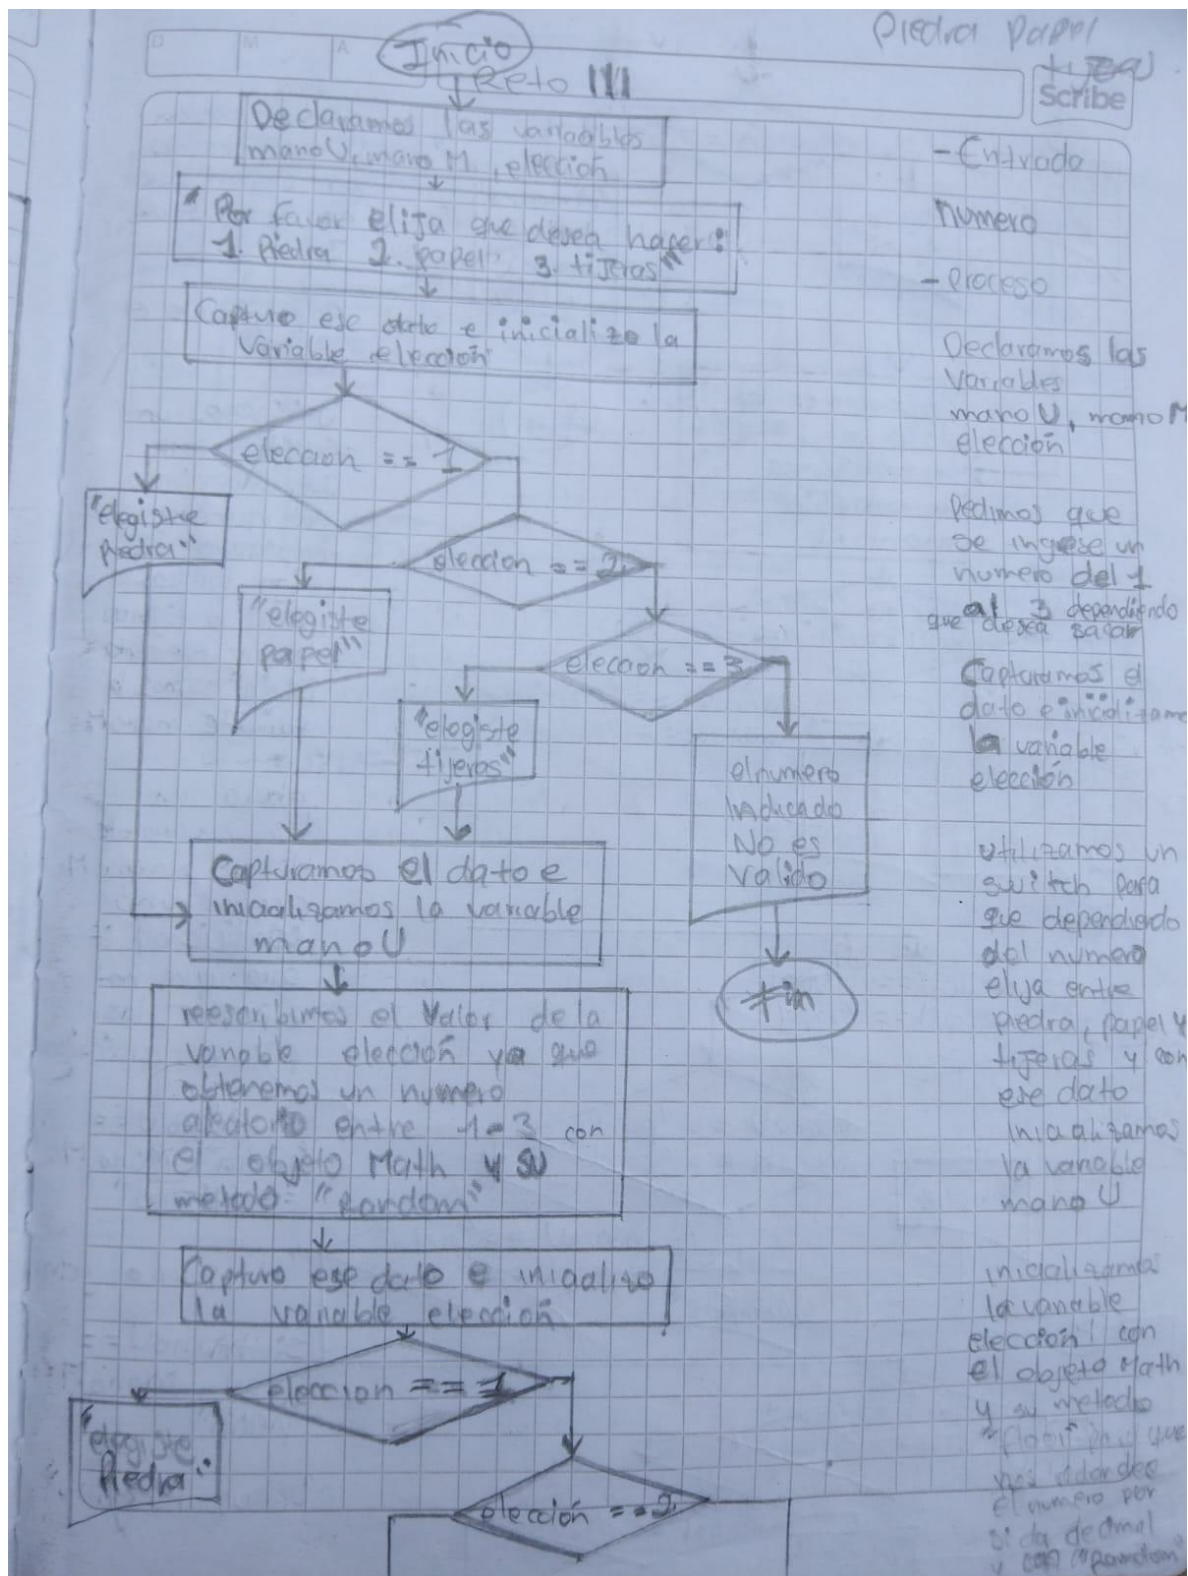 Piedra Papel
tijeras
D M A
Inicio
Reto III
Scribe
Declaramos las variables
mano U, mano M, elección
"Por favor elija que desea hacer:
1. Piedra 2. papel 3. tijeras"
Capturo ese dato e inicializo la
variable elección
elección == 1
"elegiste
piedra"
elección == 2
"elegiste
papel"
elección == 3
"elegiste
tijeras"
el numero
indicado
No es
valido
Fin
Capturamos el dato e
inicializamos la variable
mano U
reescribimos el valor de la
variable elección ya que
obtenemos un numero
aleatorio entre 1-3 con
el objeto Math y su
metodo "random"
Capturo ese dato e inicializo
la variable elección
elección == 1
"elegiste
Piedra"
elección == 2
- Entrada
numero
- Proceso
Declaramos las
variables
mano U, mano M
elección
Pedimos que
se ingrese un
numero del 1
al 3 dependiendo
que desea sacar
Capturamos el
dato e
la variable
elección
utilizamos un
switch para
que dependiendo
del numero
elija entre
piedra, papel y
tijeras y con
ese dato
inicializamos
la variable
mano U
inicializamos
la variable
elección con
el objeto Math
y su metodo
que
nos
el numero por
si da decimal
y con "random"